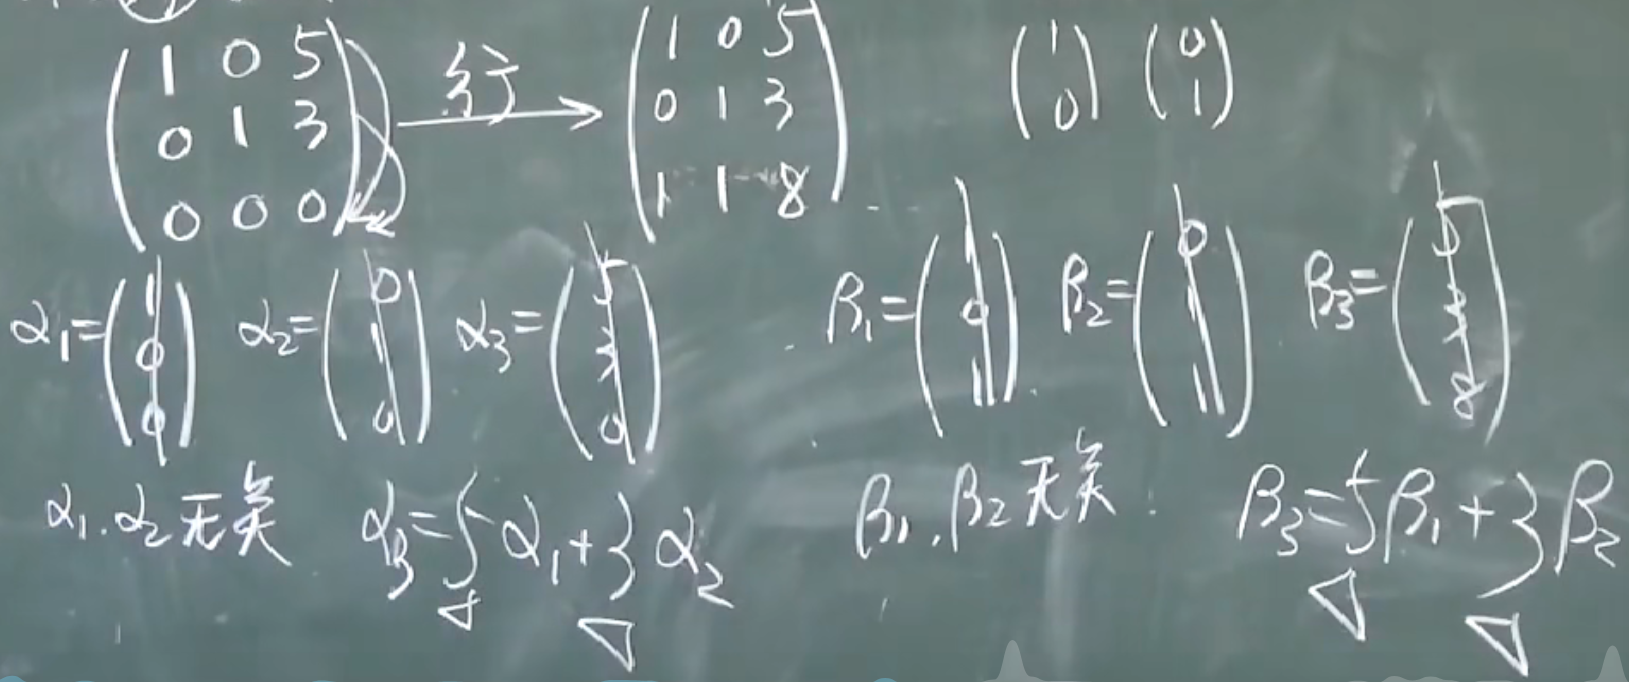 1 0 5 行 1 0 5 1 0
0 1 3 → 0 1 3 0 1
0 0 0 1 1 8
α₁=(1 0 0) α₂=(0 1 0) α₃=(5 3 0) β₁=(1 0 1) β₂=(0 1 1) β₃=(5 3 8)
α₁.α₂无关 α₃=5α₁+3α₂ β₁.β₂无关 β₃=5β₁+3β₂